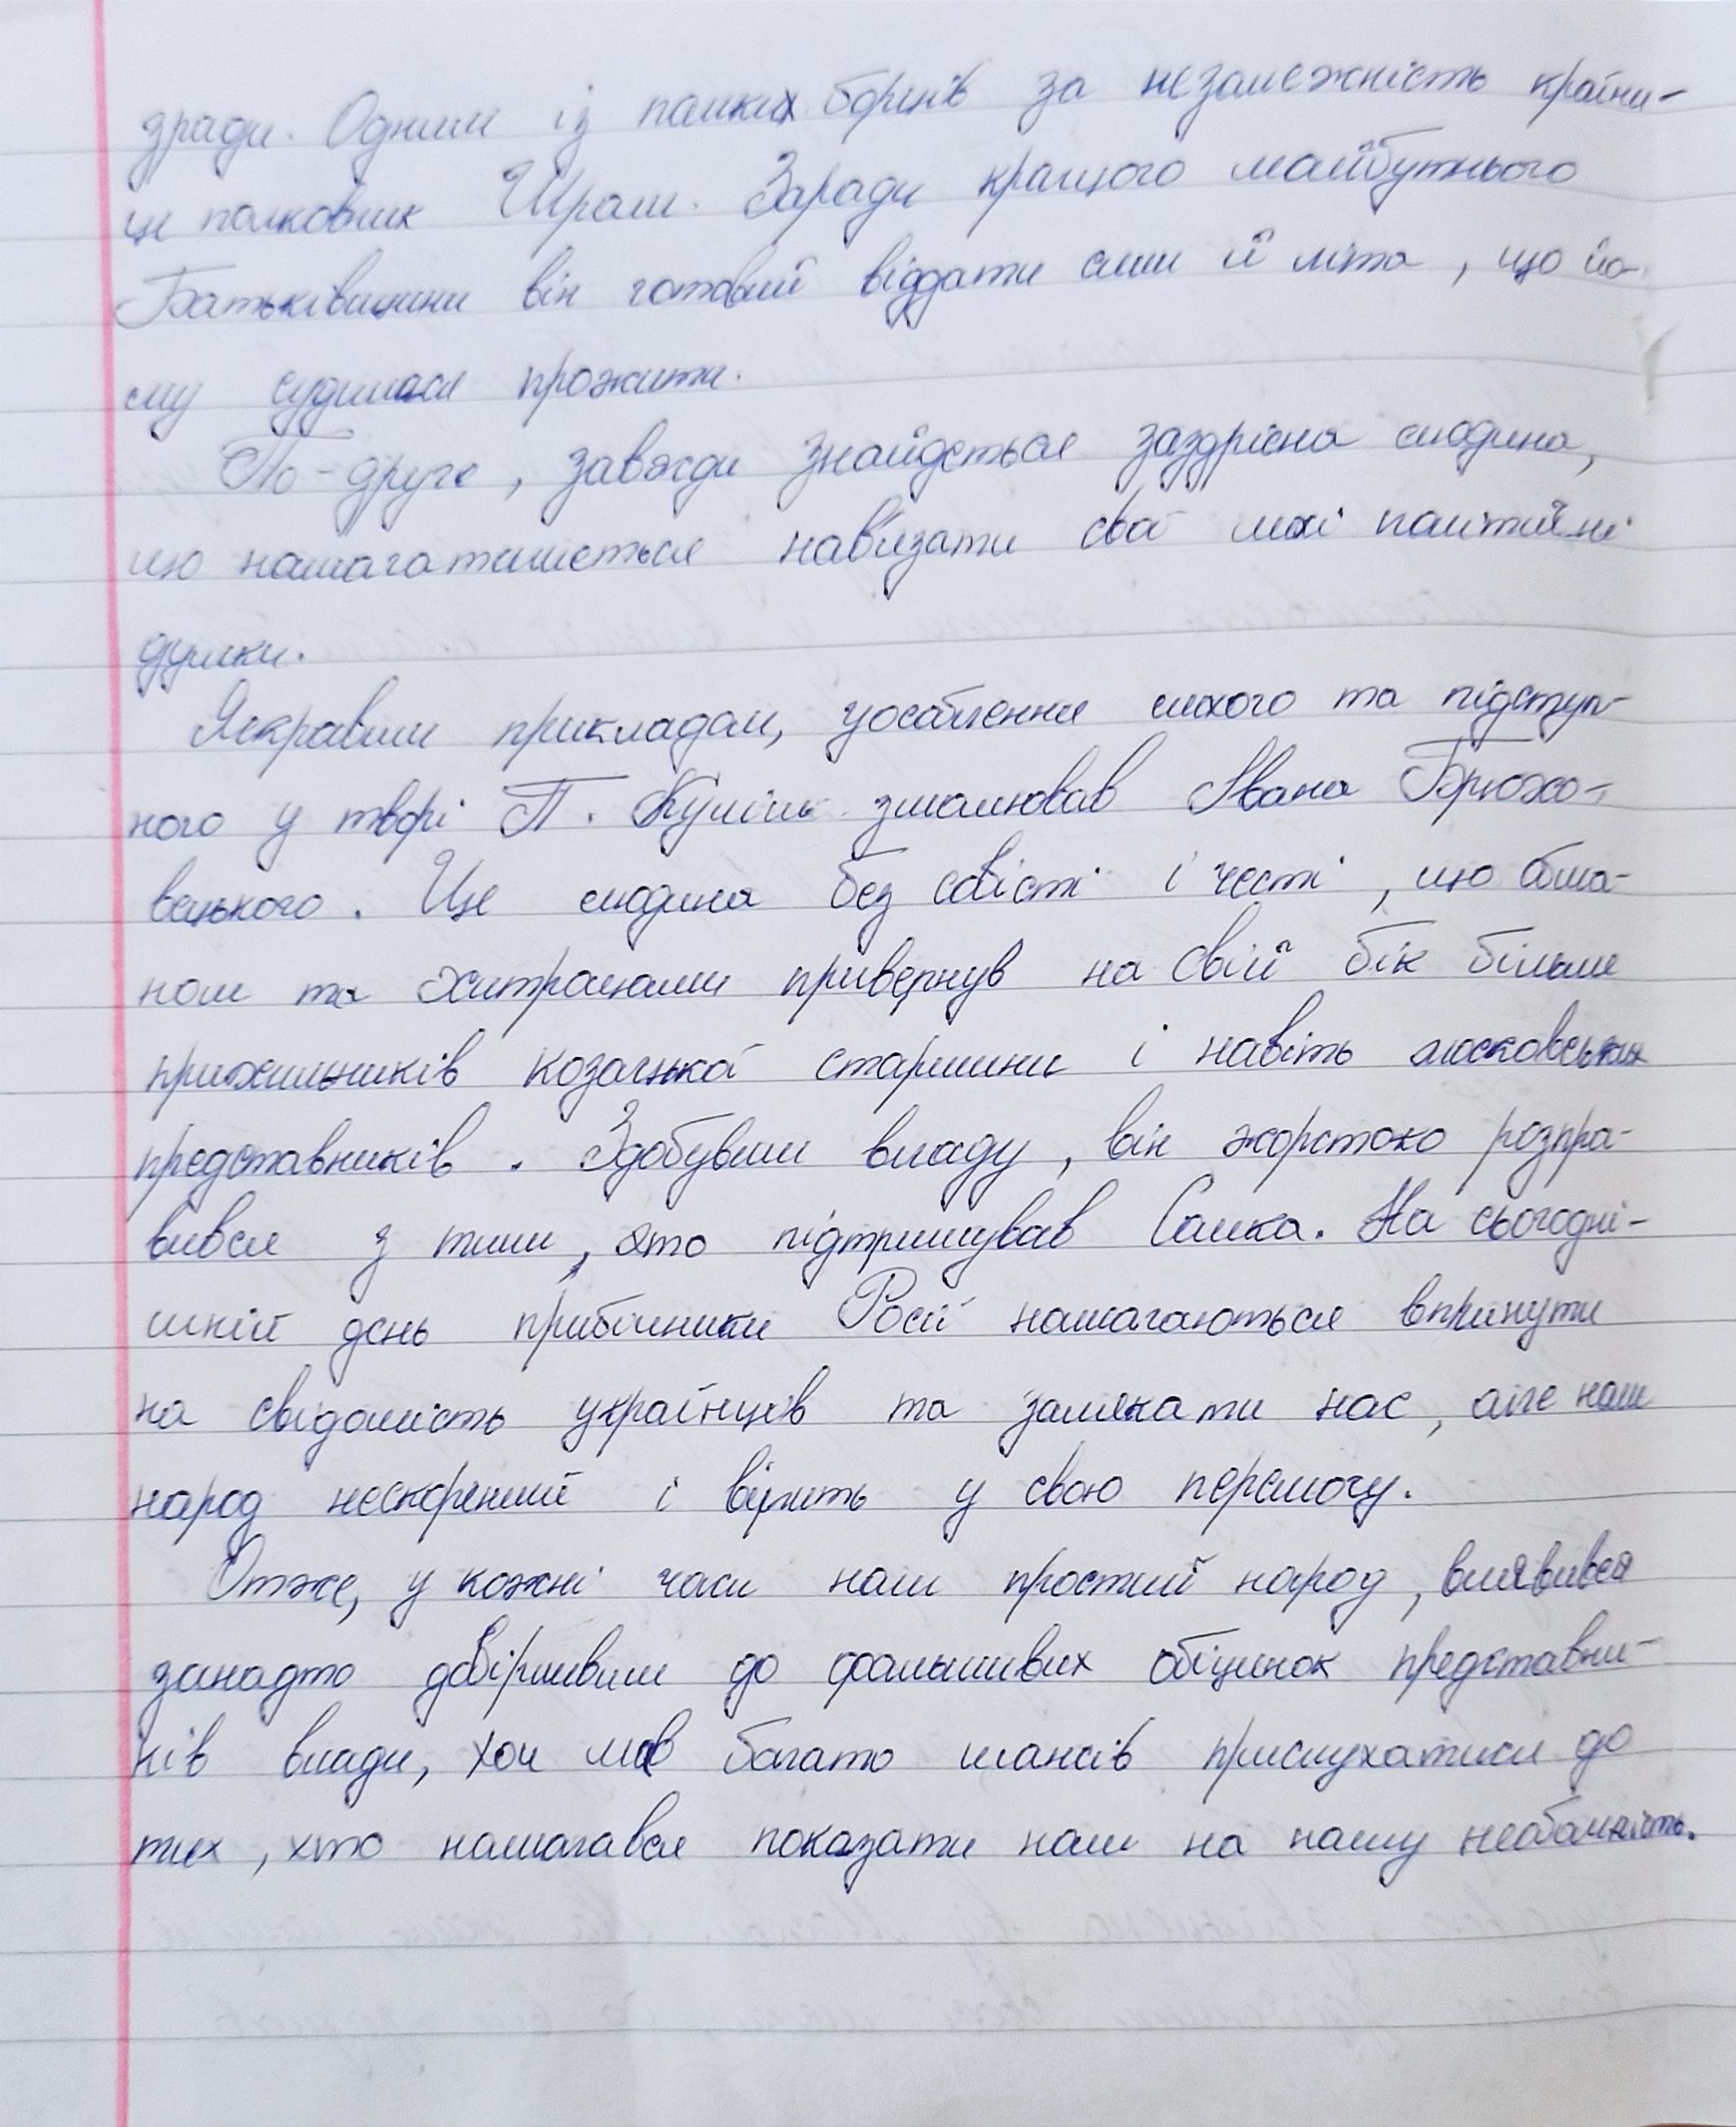 зради. Одним із палких борців за незалежність країни-
це полковник Шрам. Заради кращого майбутнього
Батьківщини він готовий віддати сили й літа, що йо-
му судилася прожити.
По-друге, завжди знайдеться заздрісна людина,
що намагатиметься нав'язати свої лихі політичні
думки.
Яскравим прикладом, уособлення лихого та підступ-
ного у творі П. Куліш змалював Івана Брюхо-
вецького. Це людина без совісті і честі, що обма-
ном та хитрощами привернув на свій бік більше
прихильників козацької старшини і навіть московських
представників. Здобувши владу, він жорстоко розпра-
вився з тими, хто підтримував Сомка. На сьогодні-
шній день прибічники Росії намагаються вплинути
на свідомість українців та залякати нас, але наш
народ нескорений і вірить у свою перемогу.
Отже, у кожні часи наш простий народ, виявився
занадто довірливим до фальшивих обіцянок представни-
ків влади, хоч мав багато шансів прислухатися до
тих, хто намагався показати нам на нашу необачність.